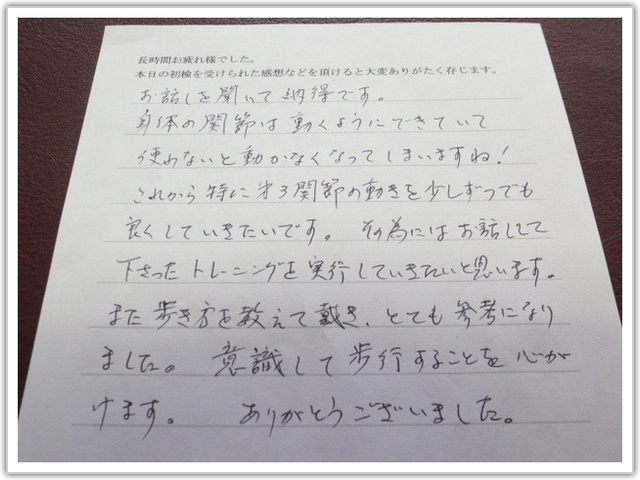 長時間お疲れ様でした。
本日の初検を受けられた感想などを頂けると大変ありがたく存じます。
お話しを聞いて納得です。
身体の関節は動くようにできていて
使わないと動かなくなってしまいますね!
これから特に 関節の動きを少しずつでも
良くしていきたいです。 その為にはお話しして
下さったトレーニングを実行していきたいと思います。
また歩き方を教えて戴き、とても参考になり
ました。 意識して歩行することを心が
けます。 ありがとうございました。